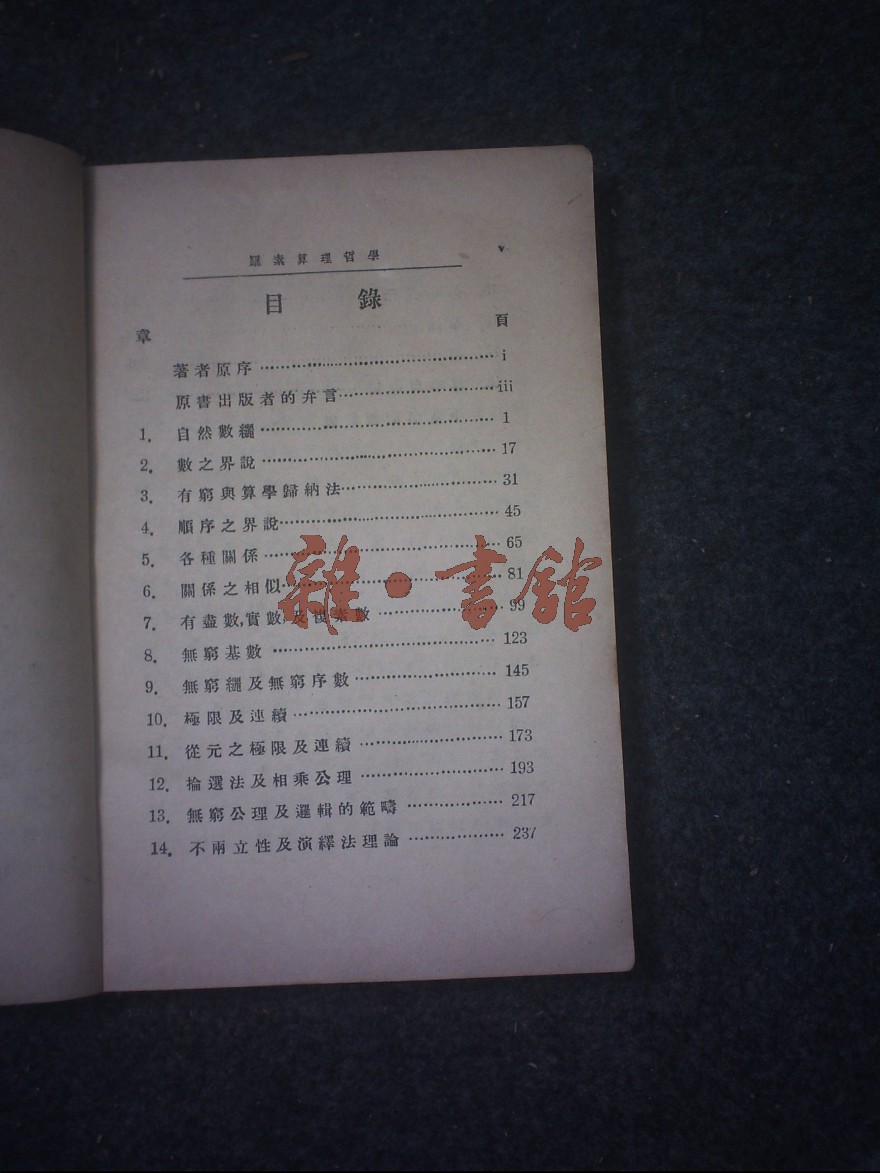 羅素算理哲學 v
目錄
章 頁
著者原序 i
原書出版者的弁言 iii
1. 自然數繩 1
2. 數之界說 17
3. 有窮與算學歸納法 31
4. 順序之界說 45
5. 各種關係 65
6. 關係之相似 81
7. 有盡數,實數,及複素數 99
8. 無窮基數 123
9. 無窮繩及無窮序數 145
10. 極限及連續 157
11. 從元之極限及連續 173
12. 掄選法及相乘公理 193
13. 無窮公理及邏輯的範疇 217
14. 不兩立性及演繹法理論 237
雜·書館